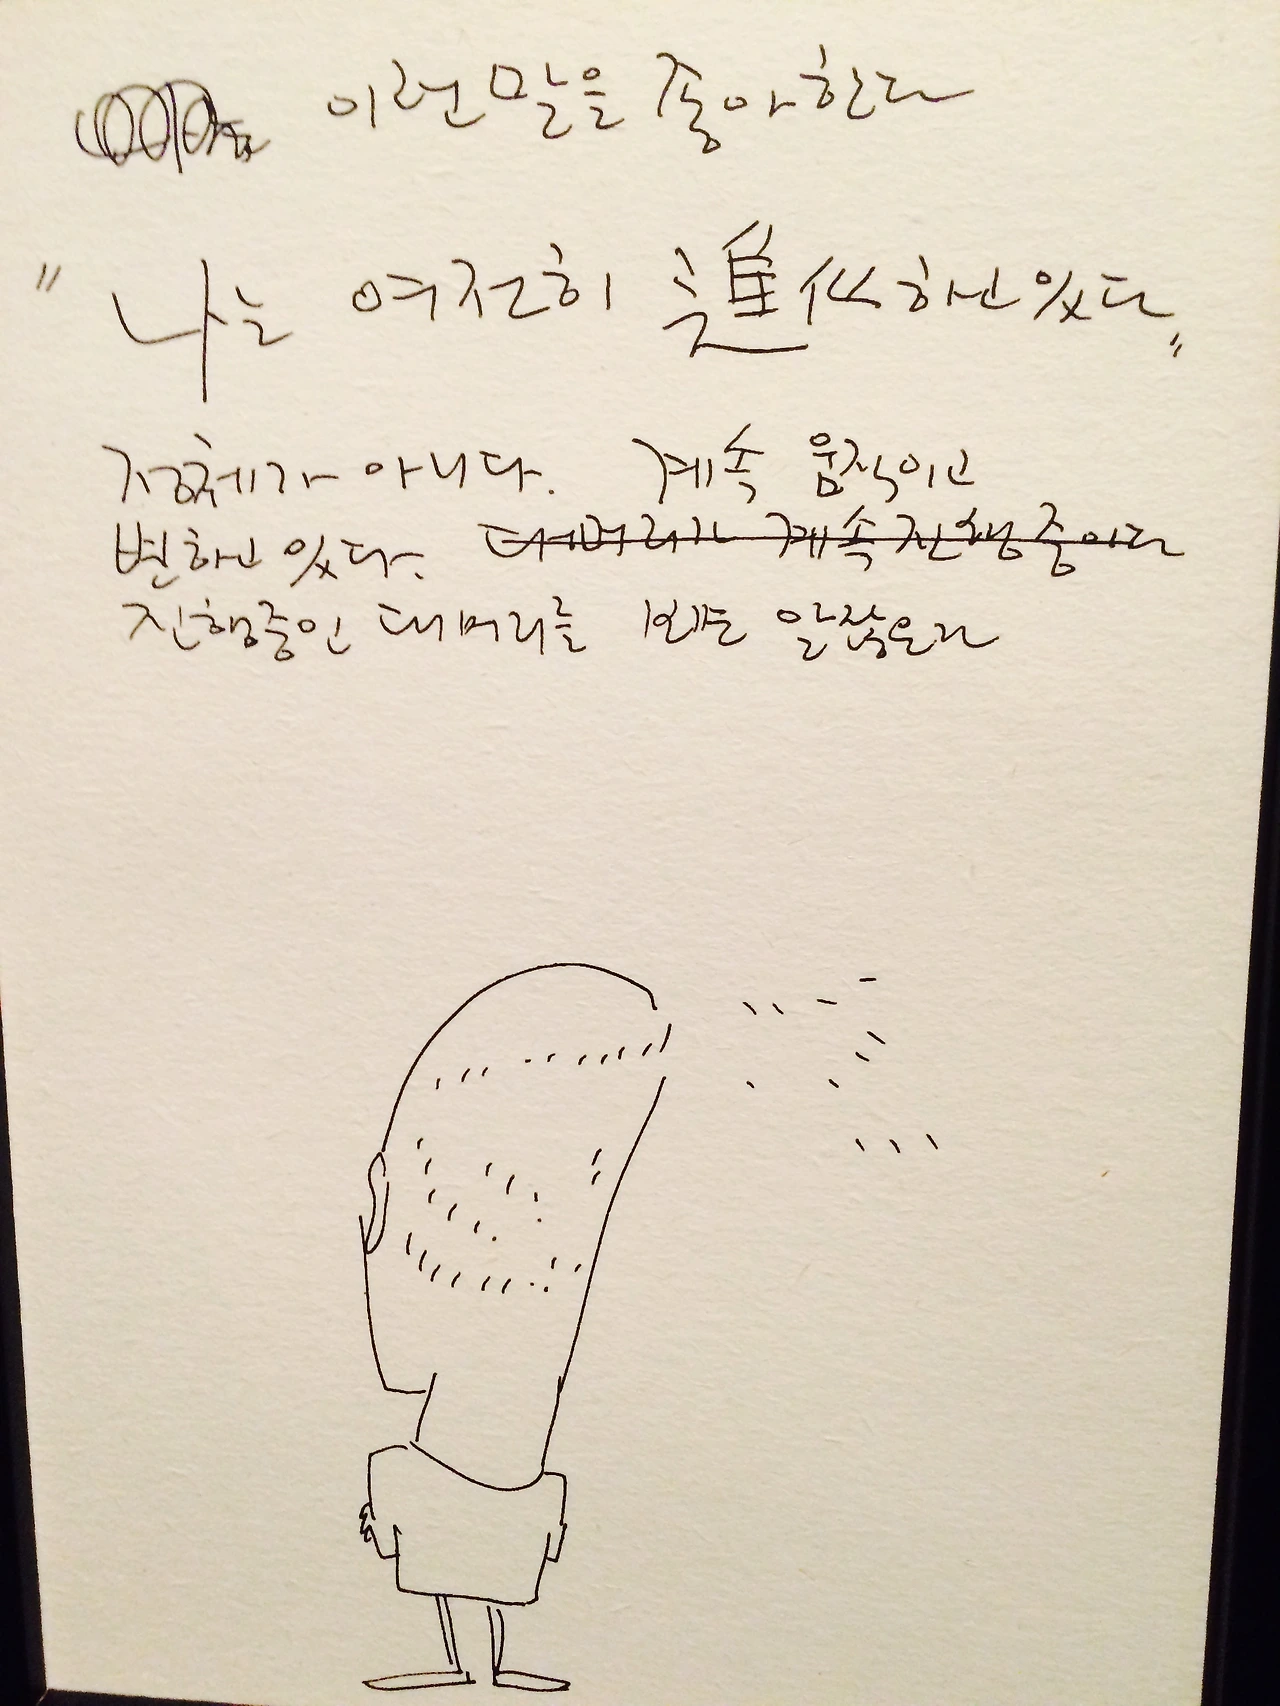 이런 말을 좋아한다
"나는 여전히 進化하고 있다"
정체가 아니다. 계속 움직이고
변하고 있다. 대머리가 계속 진행중이다
진행중인 대머리를 알잖은가